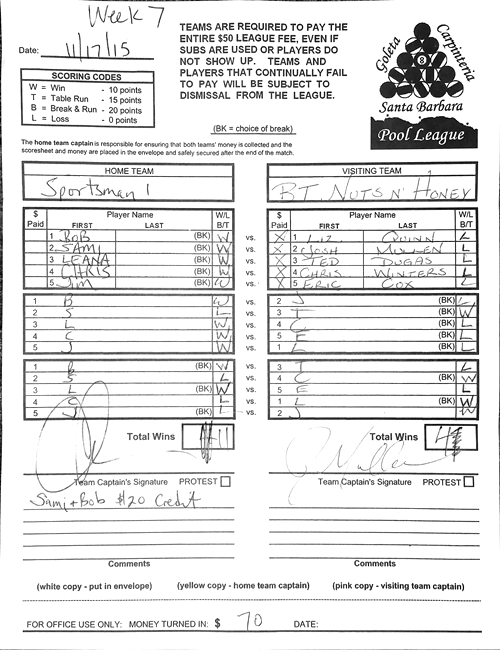 Week 7
TEAMS ARE REQUIRED TO PAY THE
ENTIRE $50 LEAGUE FEE, EVEN IF
SUBS ARE USED OR PLAYERS DO
NOT SHOW UP. TEAMS AND
PLAYERS THAT CONTINUALLY FAIL
TO PAY WILL BE SUBJECT TO
DISMISSAL FROM THE LEAGUE.
Date: 11/17/15
SCORING CODES
W = Win - 10 points
T = Table Run - 15 points
B = Break & Run - 20 points
L = Loss - 0 points
Goleta Carpinteria
8
Santa Barbara
Pool League
(BK = choice of break)
The home team captain is responsible for ensuring that both teams' money is collected and the
scoresheet and money are placed in the envelope and safely secured after the end of the match.
HOME TEAM VISITING TEAM
Sportsman 1 BT. NUTS N' HONEY
$ Paid Player Name FIRST LAST W/L B/T $ Paid Player Name FIRST LAST W/L B/T
1 BOB (BK) W vs. X 1 LIZ QUINN L
2 SAMI (BK) W vs. X 2 JOSH L
3 LEANA (BK) W vs. X 3 TED DUGAS L
4 CHRIS (BK) W vs. X 4 CHRIS WINTERS L
5 Jim (BK) W vs. X 5 ERIC COX L
1 B W vs. 2 J (BK) L
2 S L vs. 3 T (BK) W
3 L W vs. 4 C (BK) L
4 C W vs. 5 E (BK) L
5 J W vs. 1 L (BK) L
1 B (BK) W vs. 3 T L
2 S (BK) L vs. 4 C W
3 L (BK) W vs. 5 E L
4 C (BK) L vs. 1 L W
5 J (BK) L vs. 2 J W
Total Wins 11 Total Wins 4
Team Captain's Signature PROTEST Team Captain's Signature PROTEST
Sami + Bob $20 Credit
Comments Comments
(white copy - put in envelope) (yellow copy - home team captain) (pink copy - visiting team captain)
FOR OFFICE USE ONLY: MONEY TURNED IN: $ 70 DATE: